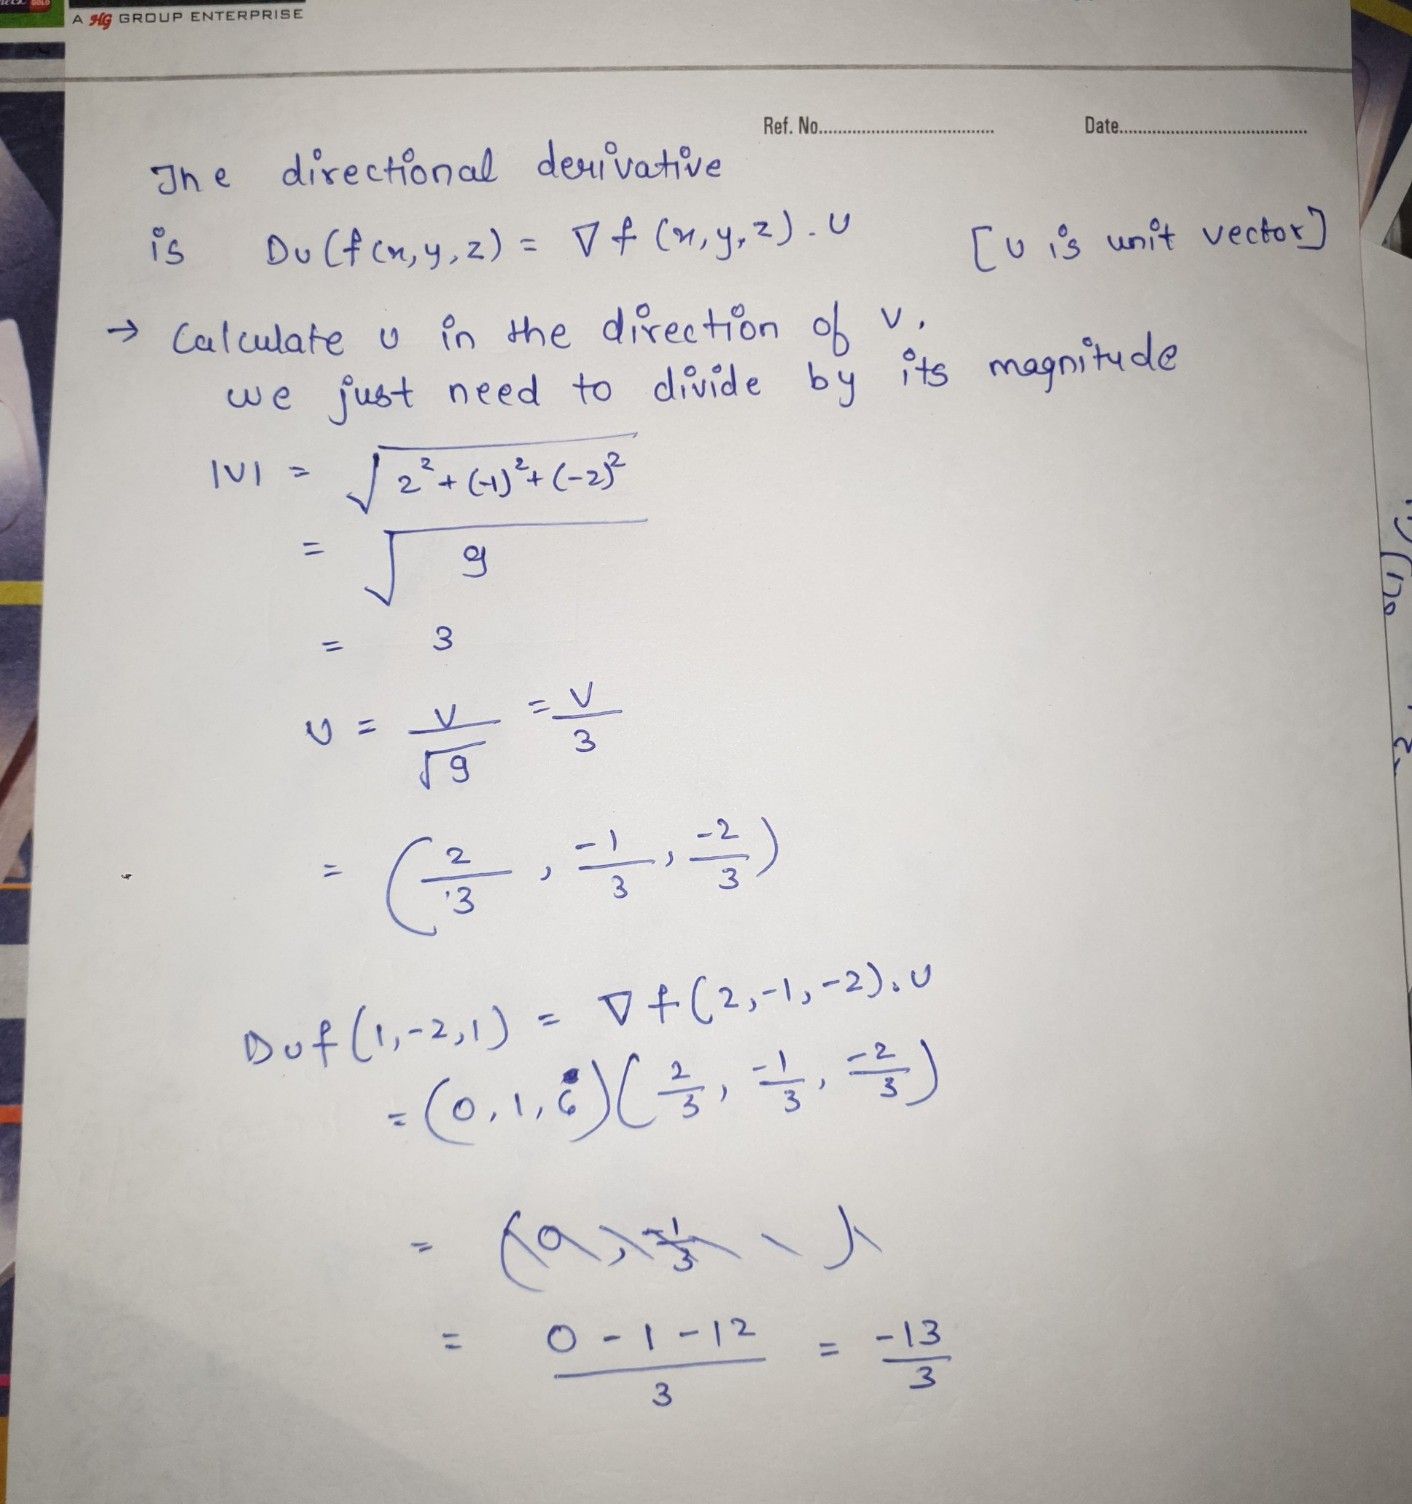 A HG GROUP ENTERPRISE
Ref. No.................................... Date.......................................
The directional derivative
is Du(f(x,y,z) = ∇f(x,y,z).U [U is unit vector]
→ Calculate U in the direction of V.
we just need to divide by its magnitude
|V| = √(2²+(-1)²+(-2)²
= √9
= 3
U = V/√9 = V/3
= (2/3, -1/3, -2/3)
Duf(1,-2,1) = ∇f(2,-1,-2).U
= (0,1,6)(2/3, -1/3, -2/3)
= 
= 0-1-12/3 = -13/3